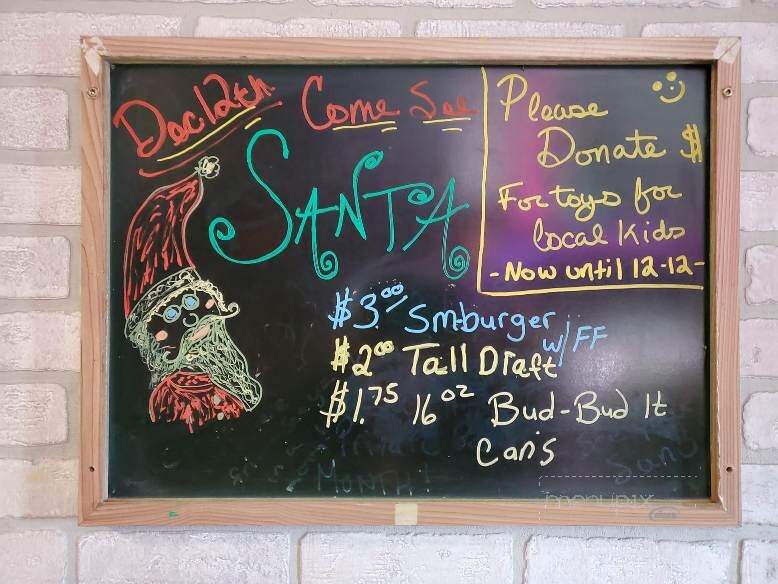 Dec 12th Come See
SANTA
Please
Donate $
For toys for
local Kids
- Now until 12-12-
$3.00 Sm burger w/ FF
$2.00 Tall Draft
$1.75 16 oz Bud-Bud lt
Cans
MONTH!
menupix